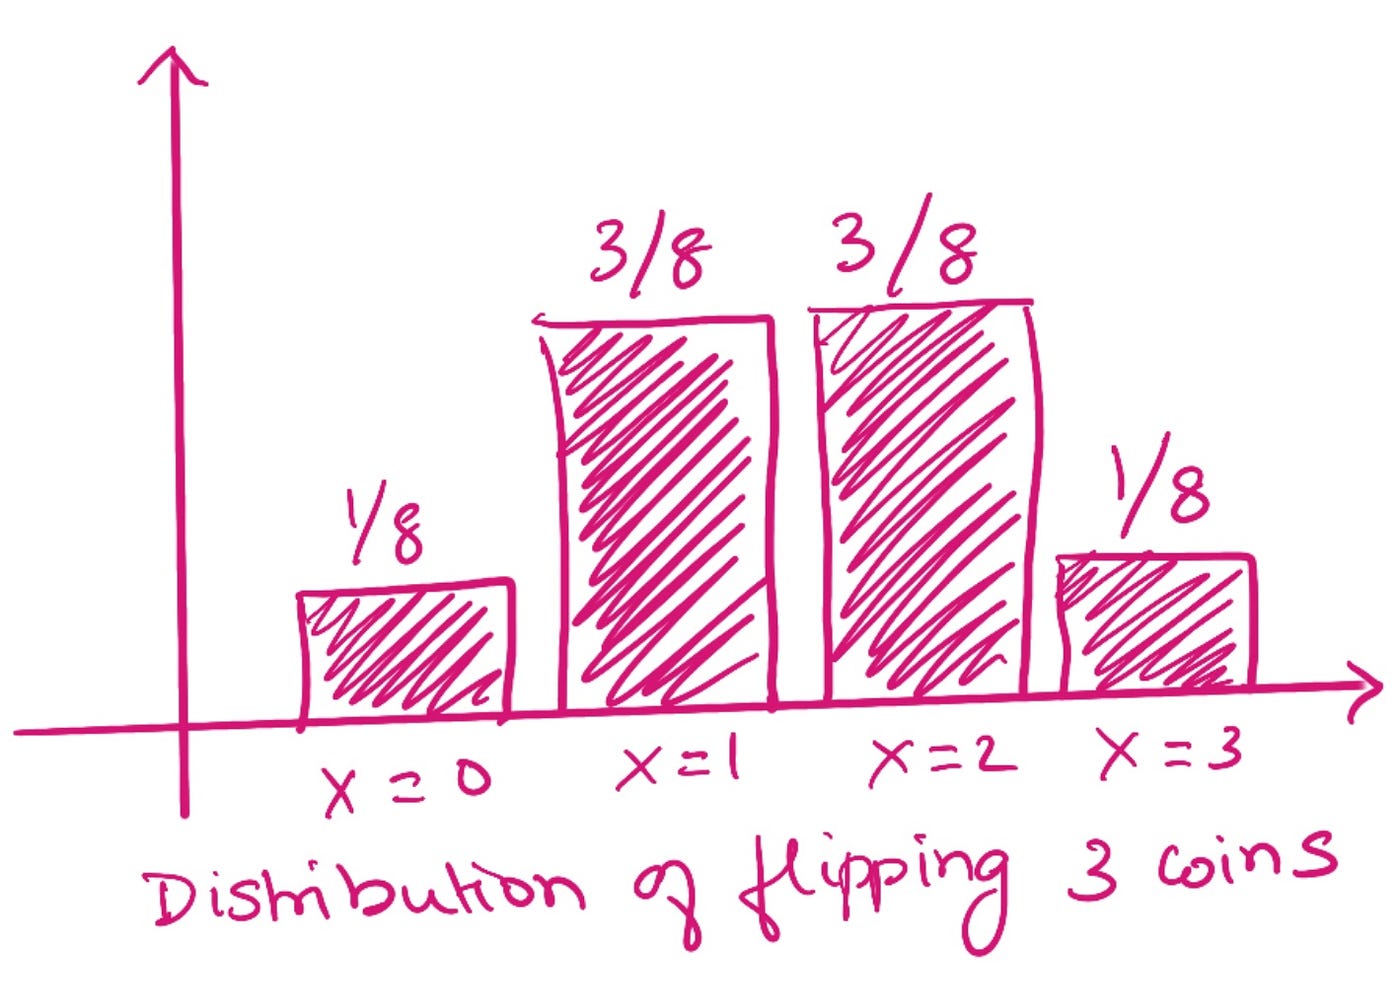 3/8 3/8
1/8 1/8
x = 0 x = 1 x = 2 x = 3
Distribution of flipping 3 coins